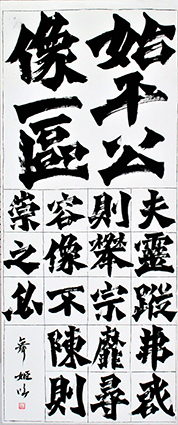 始平公
像一區
夫靈蹤弗啟
則攀宗靡尋
容像不陳則
崇之必